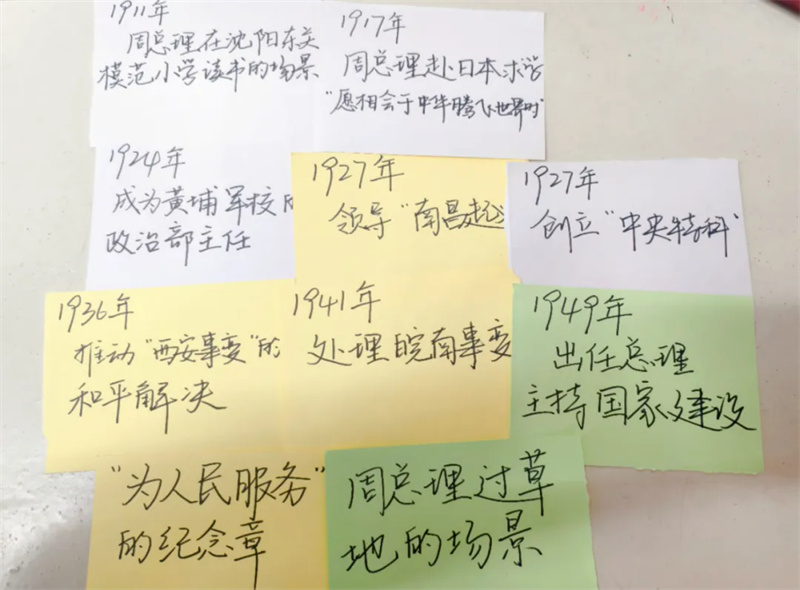 1911年
周总理在沈阳东关
模范小学读书的场景
1917年
周总理赴日本求学
"愿相会于中华腾飞世界时"
1924年
成为黄埔军校
政治部主任
1927年
领导"南昌起
1927年
创立"中央特科"
1936年
推动"西安事变"的
和平解决
1941年
处理皖南事变
1949年
出任总理
主持国家建设
"为人民服务"
的纪念章
周总理过草
地的场景